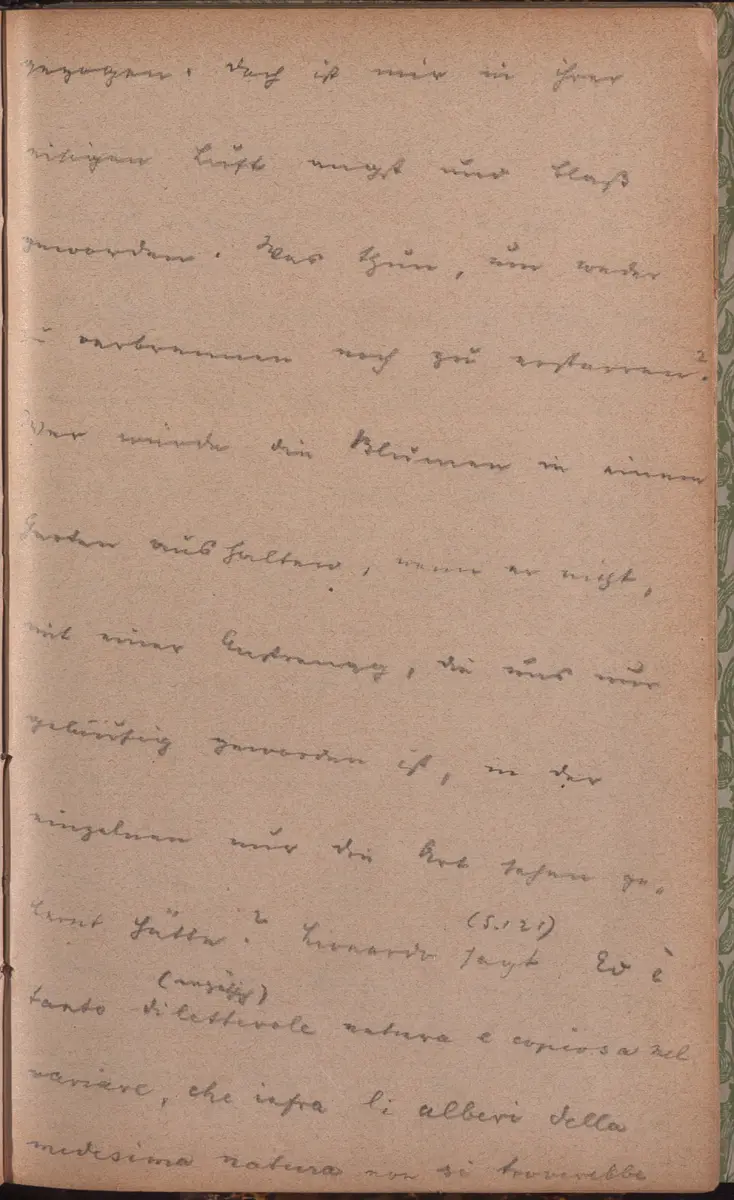 gezogen. Doch ist mir in ihrer
eisigen Luft angst und blaß
geworden. Was thun, um weder
zu verbrennen noch zu erstarren?
Wer würde die Blumen in einem
Garten aushalten, wenn er nicht,
mit einer Anstrengg, die uns nur
geläufig geworden ist, in der
einzelnen nur die Art sehen ge-
lernt hätte? Lionardo sagt (S.121) Ed è
tanto dilettevole natura e copiosa nel
variare, che infra li alberi della
medesima natura non si troverebbe